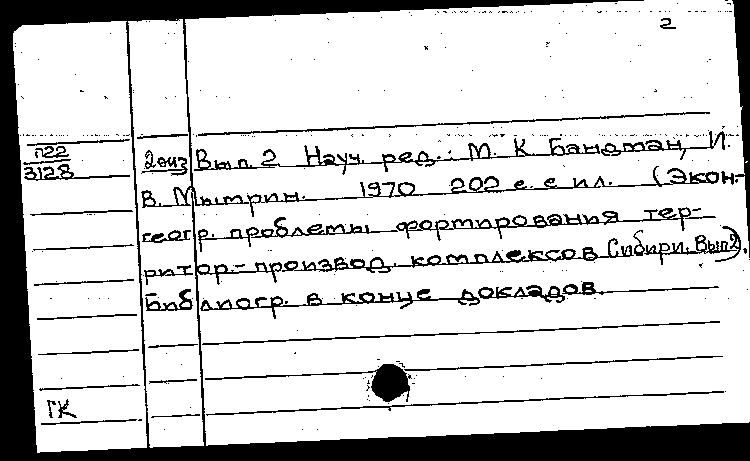 2
П22
3128
2 экз Вып. 2 Науч. ред.: М. К. Бандман, И.
В. Мытрин. 1970 202 с. с ил. (Экон.-
геогр. проблемы формирования тер-
ритор.-производ. комплексов Сибири. Вып 2).
Библиогр. в конце докладов.
ГК